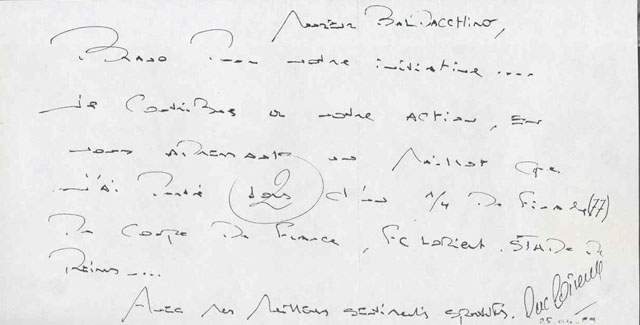 Monsieur BALDACCHINO,
Bravo pour votre initiative ....
Je contribue à votre ACTION, EN
vous adressant un maillot que
J'AI Porté lors d'un 1/4 De Finale (77)
De Coupe De France, FC LORIENT. STADE DE
REIMS ....
Avec mes meilleurs sentiments sportifs.